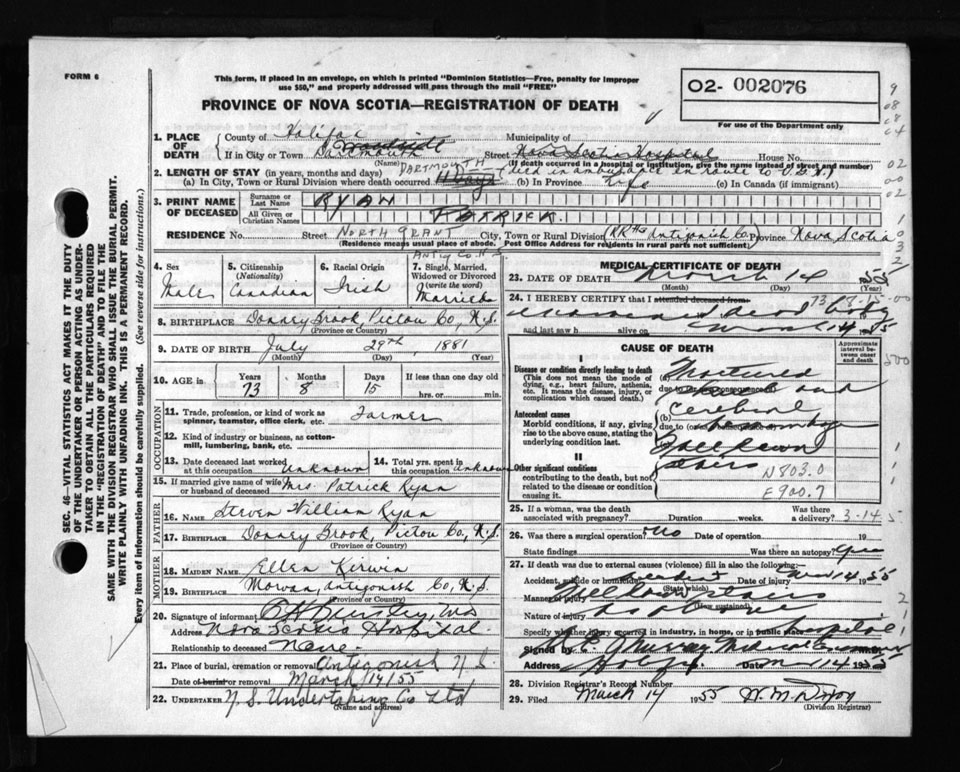 FORM 6
This form, if placed in an envelope, on which is printed "Dominion Statistics—Free, penalty for improper
use $50," and properly addressed will pass through the mail "FREE"
PROVINCE OF NOVA SCOTIA—REGISTRATION OF DEATH
02- 002076
For use of the Department only
9
08
64
02
00
02
1
0
3
2
SEC. 46—VITAL STATISTICS ACT MAKES IT THE DUTY
OF THE UNDERTAKER OR PERSON ACTING AS UNDER-
TAKER TO OBTAIN ALL THE PARTICULARS REQUIRED
IN THE "REGISTRATION OF DEATH" AND TO FILE THE
SAME WITH THE DIVISION REGISTRAR WHO SHALL ISSUE THE BURIAL PERMIT.
WRITE PLAINLY WITH UNFADING INK. THIS IS A PERMANENT RECORD.
Every item of information should be carefully supplied. (See reverse side for instructions.)
1. PLACE OF DEATH County of Halifax Municipality of
If in City or Town Dartmouth Street Nova Scotia Hospital House No.
(Name) (If death occurred in a hospital or institution, give the name instead of street and number)
DARTMOUTH died in ambulance in route to
2. LENGTH OF STAY (in years, months and days)
(a) In City, Town or Rural Division where death occurred 11 Days (b) In Province Life (c) In Canada (if immigrant)
3. PRINT NAME OF DECEASED Surname or Last Name RYAN
All Given or Christian Names PATRICK.
RESIDENCE No. Street NORTH GRANT City, Town or Rural Division (RR#2 Antigonish Co.) Province Nova Scotia
(Residence means usual place of abode. Post Office Address for residents in rural parts not sufficient)
ANTIG CO. N S
4. Sex Male
5. Citizenship (Nationality) Canadian
6. Racial Origin Irish
7. Single, Married, Widowed or Divorced (write the word) Married
8. BIRTHPLACE Donney Brook Pictou Co, N.S.
(Province or Country)
9. DATE OF BIRTH July 28th, 1881
(Month) (Day) (Year)
10. AGE in Years 73 Months 8 Days 15 If less than one day old hrs. or min.
OCCUPATION
11. Trade, profession, or kind of work as spinner, teamster, office clerk, etc. Farmer
12. Kind of industry or business, as cotton-mill, lumbering, bank, etc.
13. Date deceased last worked at this occupation Unknown 14. Total yrs. spent in this occupation Unknown
15. If married give name of wife or husband of deceased Mrs. Patrick Ryan
FATHER
16. NAME Steven William Ryan
17. BIRTHPLACE Donney Brook, Pictou Co, N.S.
(Province or Country)
MOTHER
18. MAIDEN NAME Ellen Kirwin
19. BIRTHPLACE Antigonish Co, N.S.
(Province or Country)
20. Signature of informant M.D.
Address Nova Scotia Hospital.
Relationship to deceased None.
21. Place of burial, cremation or removal Antigonish N.S.
Date of burial or removal March 14/55
22. UNDERTAKER N.S. Undertaking Co Ltd
(Name and address)
MEDICAL CERTIFICATE OF DEATH
23. DATE OF DEATH March 14 1955
(Month) (Day)
24. I HEREBY CERTIFY that I attended deceased from
examined dead body
and last saw h alive on March 14 1955
CAUSE OF DEATH
Approximate interval between onset and death
I
Disease or condition directly leading to death
(This does not mean the mode of dying, e.g., heart failure, asthenia, etc. It means the disease, injury, or complication which caused death.)
(a) Fractured
due to (or as a consequence of) and
Antecedent causes
Morbid conditions, if any, giving rise to the above cause, stating the underlying condition last.
(b) Cerebral
due to (or as a consequence of) Hemorrhage
Fell down
stairs
II
Other significant conditions
contributing to the death, but not related to the disease or condition causing it.
N803.0
E900.7
500
25. If a woman, was the death associated with pregnancy? Duration weeks. Was there a delivery? 3-14 5
26. Was there a surgical operation? No Date of operation 19
State findings Was there an autopsy?
27. If death was due to external causes (violence) fill in also the following:
Accident, suicide or homicide? Accident Date of injury Mar 14 1955
(State which)
Manner of injury Fell down stairs
(How sustained)
Nature of injury as above
Specify whether injury occurred in industry, in home, or in public place hospital
Signed by Murray Medical Examiner M.D.
Address Halifax Date Mar 14 1955
28. Division Registrar's Record Number
29. Filed March 14 1955
(Division Registrar)